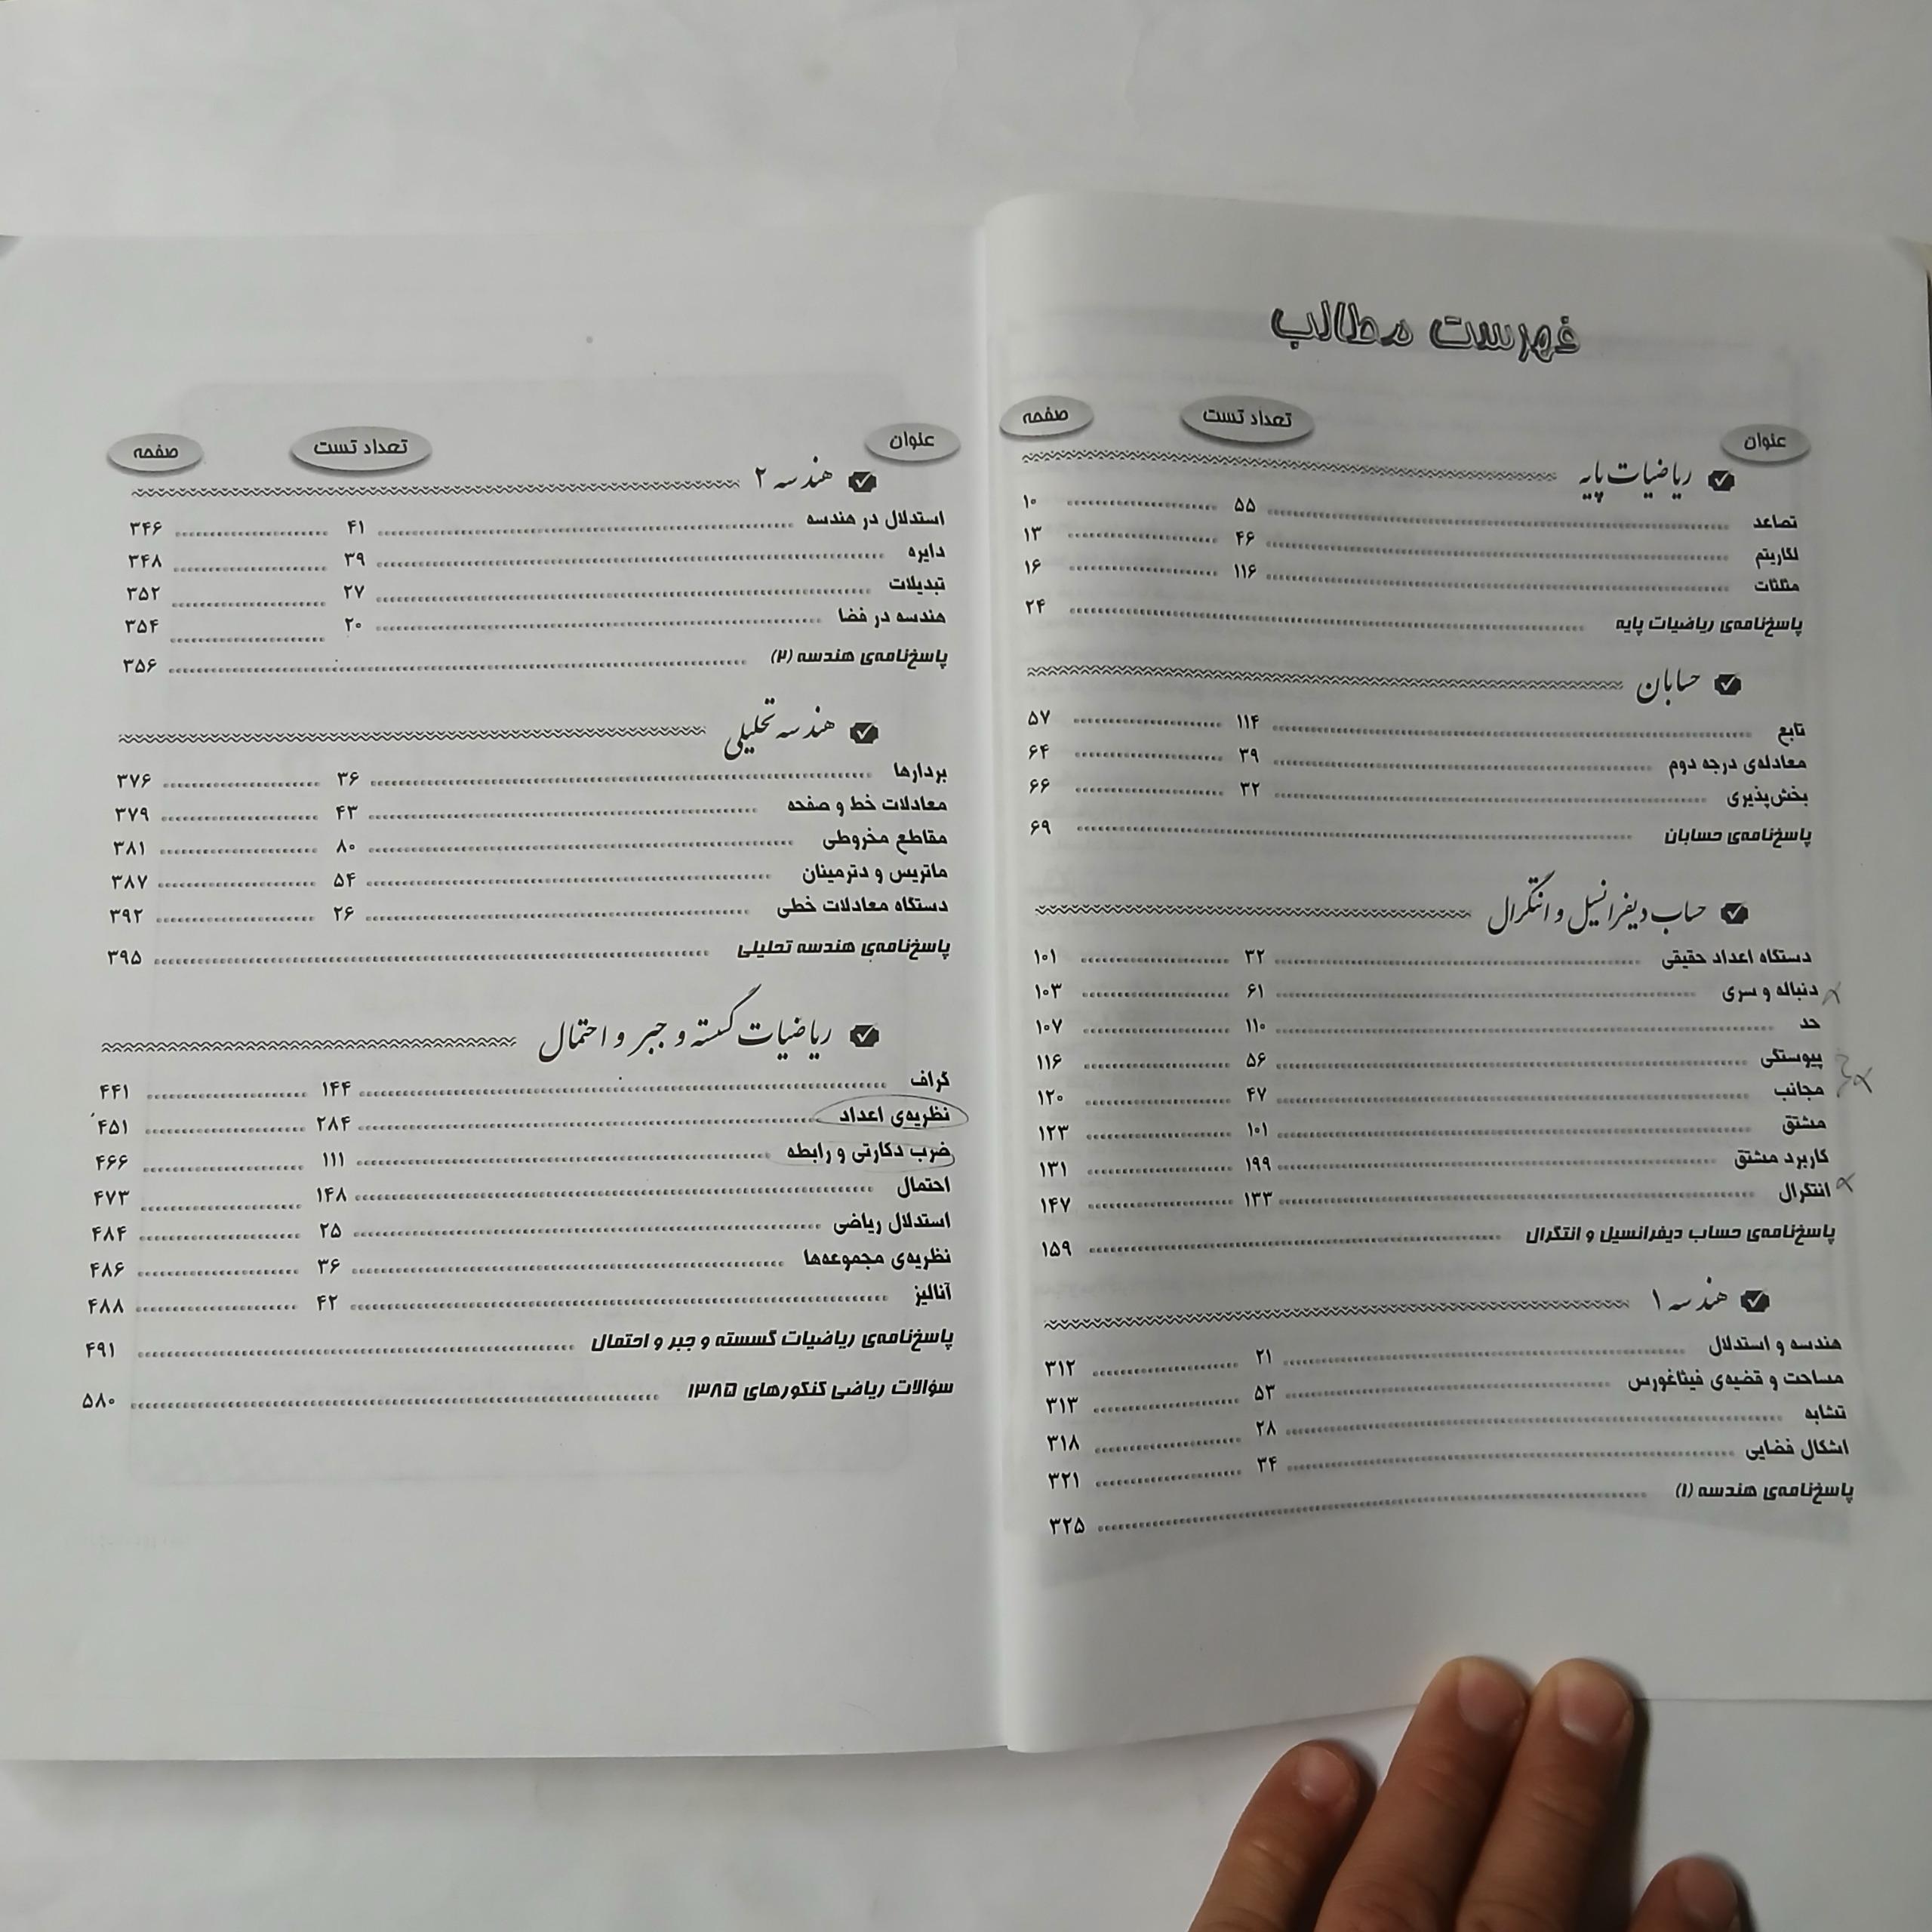 فهرست مطالب
عنوان تعداد تست صفحه
ریاضیات پایه
تصاعد ۵۵ ۱۰
لگاریتم ۴۶ ۱۳
مثلثات ۱۱۶ ۱۶
پاسخ‌نامه‌ی ریاضیات پایه ۲۴
حسابان
تابع ۱۱۴ ۵۷
معادله‌ی درجه دوم ۳۹ ۶۴
بخش‌پذیری ۳۲ ۶۶
پاسخ‌نامه‌ی حسابان ۶۹
حساب دیفرانسیل و انتگرال
دستگاه اعداد حقیقی ۳۲ ۱۰۱
دنباله و سری ۶۱ ۱۰۳
حد ۱۱۰ ۱۰۷
پیوستگی ۵۶ ۱۱۶
مجانب ۴۷ ۱۲۰
مشتق ۱۰۱ ۱۲۳
کاربرد مشتق ۱۹۹ ۱۳۱
انتگرال ۱۳۳ ۱۴۷
پاسخ‌نامه‌ی حساب دیفرانسیل و انتگرال ۱۵۹
هندسه ۱
هندسه و استدلال ۲۱ ۳۱۲
مساحت و قضیه‌ی فیثاغورس ۵۳ ۳۱۳
تشابه ۲۸ ۳۱۸
اشکال فضایی ۳۴ ۳۲۱
پاسخ‌نامه‌ی هندسه (۱) ۳۲۵
عنوان تعداد تست صفحه
هندسه ۲
استدلال در هندسه ۴۱ ۳۴۶
دایره ۳۹ ۳۴۸
تبدیلات ۲۷ ۳۵۲
هندسه در فضا ۲۰ ۳۵۴
پاسخ‌نامه‌ی هندسه (۲) ۳۵۶
هندسه تحلیلی
بردارها ۳۶ ۳۷۶
معادلات خط و صفحه ۴۳ ۳۷۹
مقاطع مخروطی ۸۰ ۳۸۱
ماتریس و دترمینان ۵۴ ۳۸۷
دستگاه معادلات خطی ۲۶ ۳۹۲
پاسخ‌نامه‌ی هندسه تحلیلی ۳۹۵
ریاضیات گسسته و جبر و احتمال
گراف ۱۴۴ ۴۴۱
نظریه‌ی اعداد ۲۸۴ ۴۵۱
ضرب دکارتی و رابطه ۱۱۱ ۴۶۶
احتمال ۱۴۸ ۴۷۳
استدلال ریاضی ۲۵ ۴۸۴
نظریه‌ی مجموعه‌ها ۳۶ ۴۸۶
آنالیز ۴۲ ۴۸۸
پاسخ‌نامه‌ی ریاضیات گسسته و جبر و احتمال ۴۹۱
سؤالات ریاضی کنکورهای ۱۳۸۵ ۵۸۰